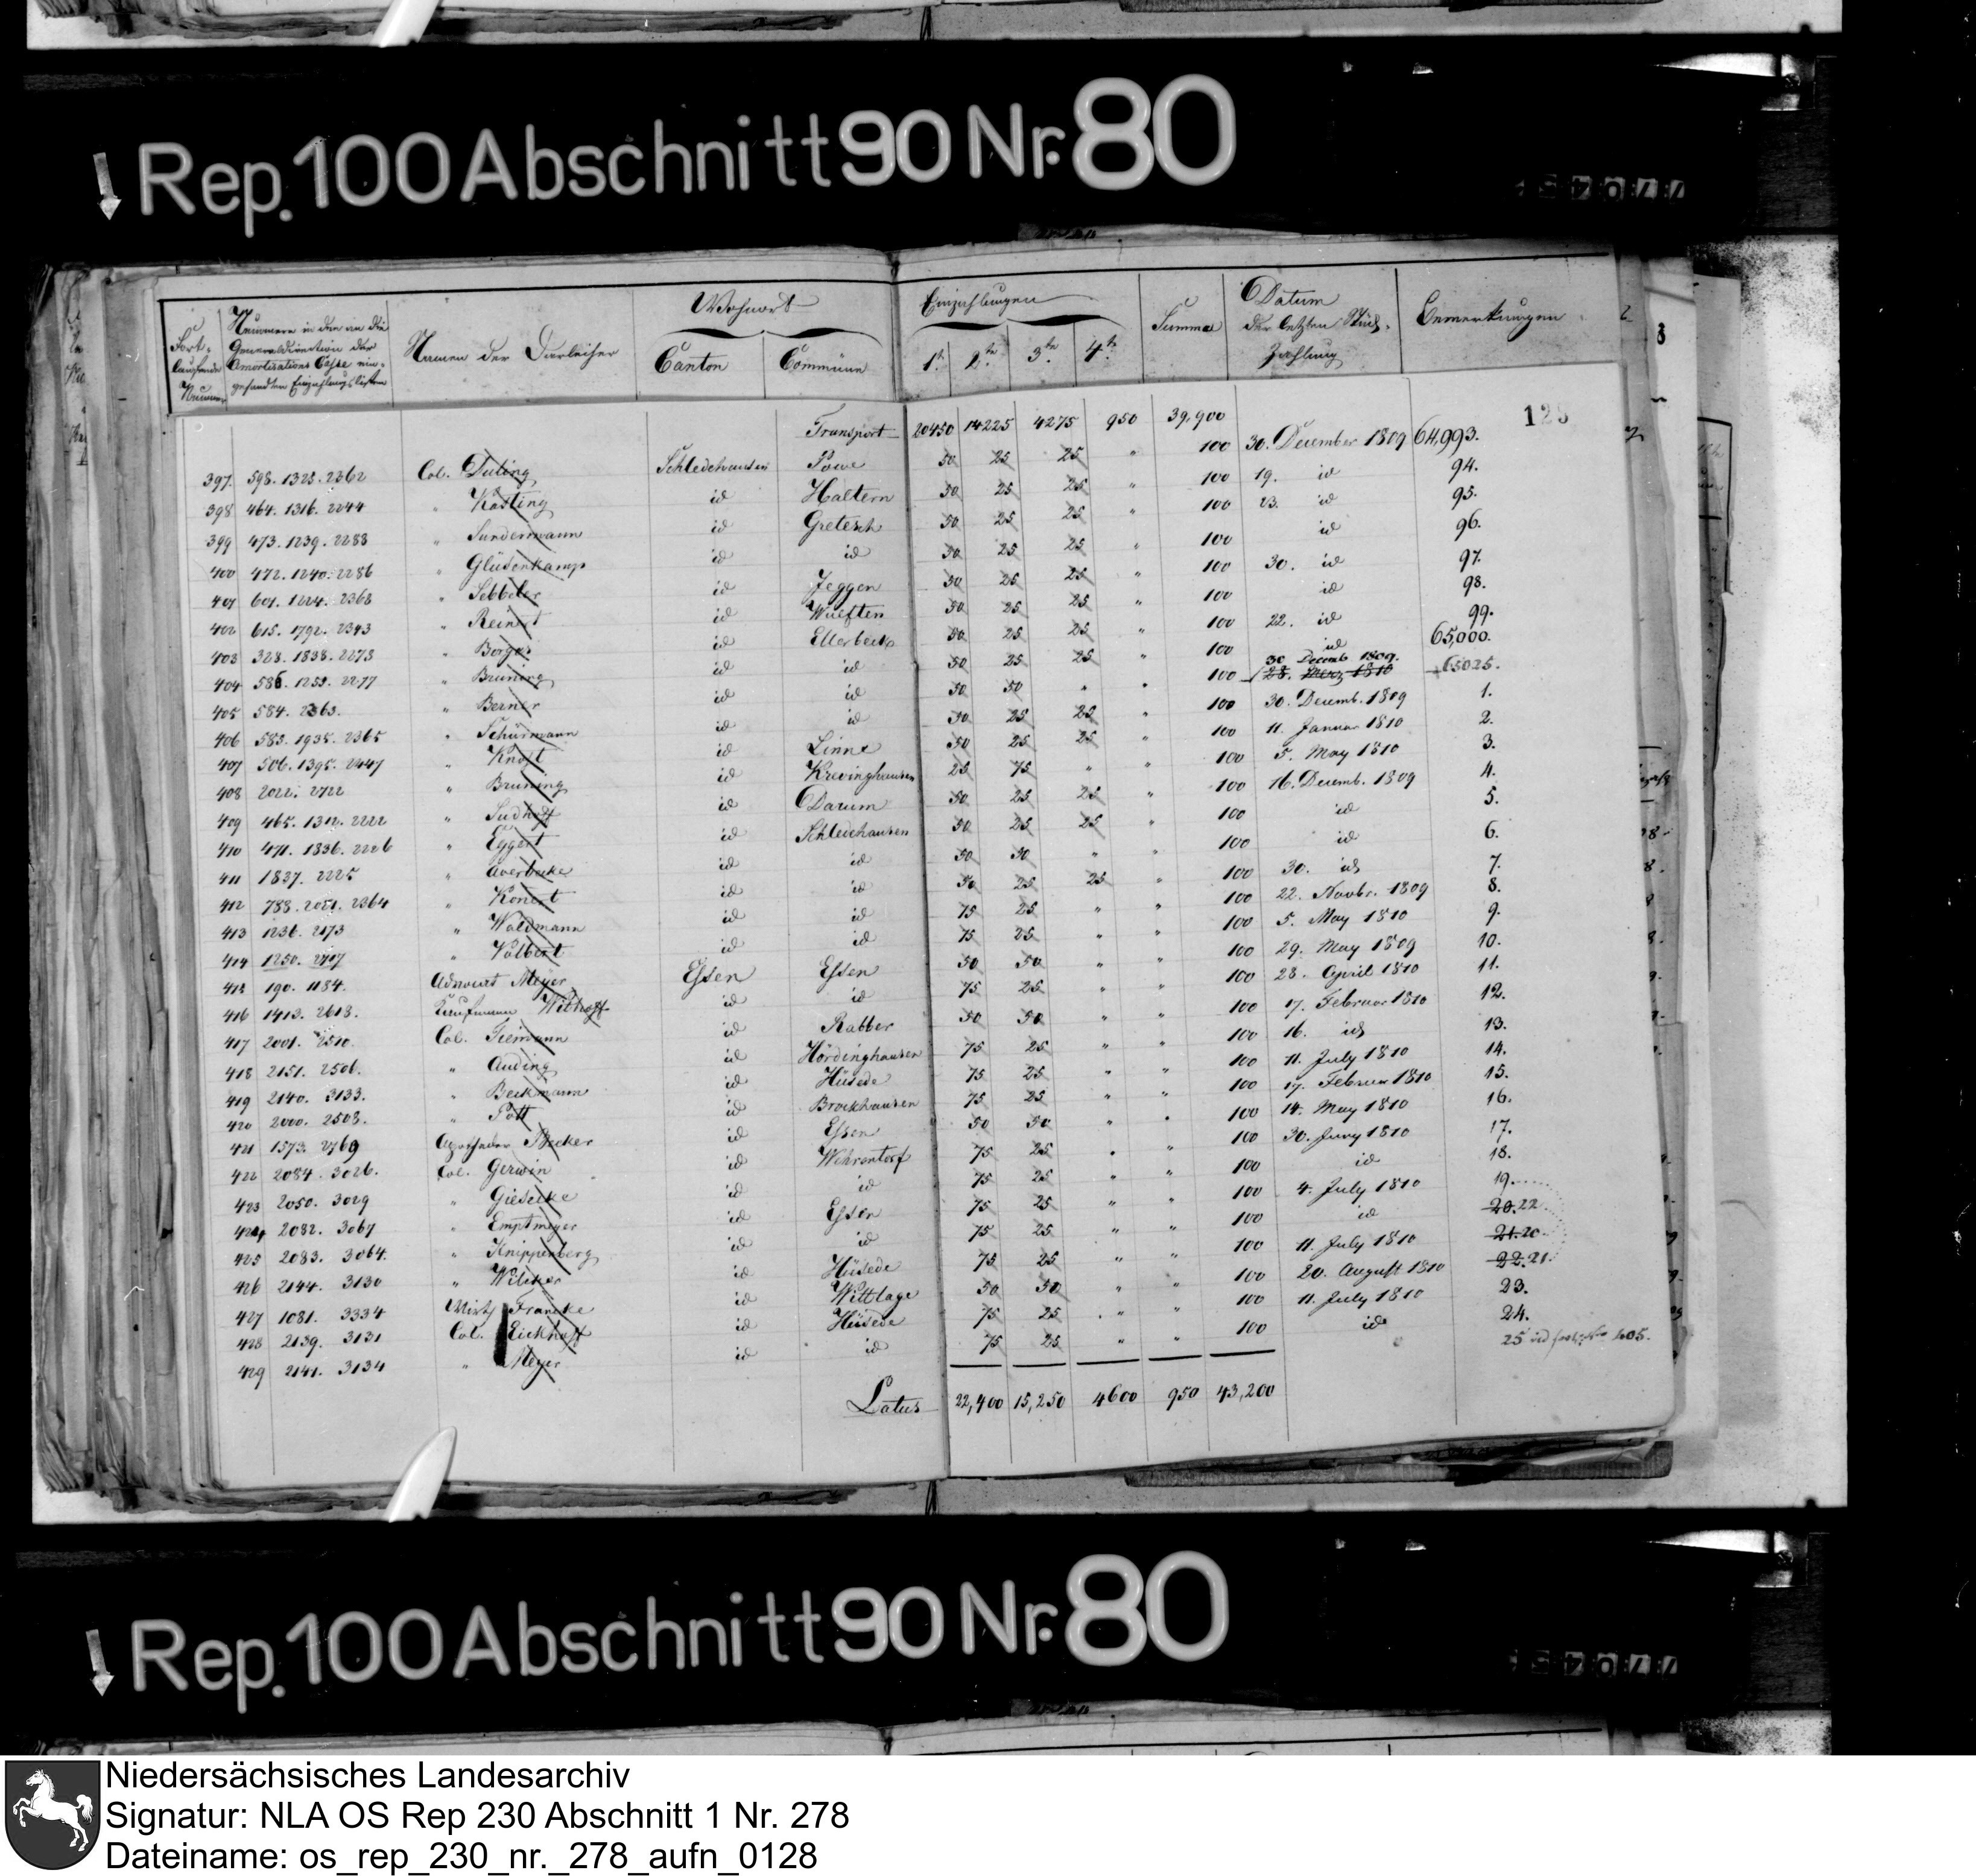 Rep. 100 Abschnitt 90 Nr. 80
Fort-laufende Numero | Nummern in den an die Generaldirection der Amortisations Casse ein-gesandten Einzahlungslisten | Namen der Darleiher | Wohnort | Canton | Commüne | Einzahlungen | 1te | 2te | 3te | 4te | Summa | Datum der letzten Stück-Zahlung | Bemerkungen
Transport 20450 14225 4275 950 39,900
397. 598. 1328. 2362 Col. Düling Schledehausen Powe 50 25 25 " 100 30. December 1809 64,993.
398 464. 1316. 2244 " Kasting id Haltern 50 25 25 " 100 19. id 94.
399 473. 1239. 2288 " Sundermann id Gretesch 50 25 25 " 100 23. id 95.
400 472. 1240. 2286 " Glüsenkamp id id 50 25 25 " 100 id 96.
401 601. 1224. 2368 " Sebbeler id Jeggen 50 25 25 " 100 30. id 97.
402 615. 1792. 2343 " Reinert id Wulften 50 25 25 " 100 id 98.
403 328. 1838. 2273 " Borges id Ellerbeck 50 25 25 " 100 22. id 99.
404 586. 1253. 2277 " Brüning id id 50 25 25 " 100 id 65,000.
405 584. 2363. " Berner id id 50 50 " " 100 30 Decemb 1809. 28. Merz 1810 65025.
406 583. 1935. 2365 " Schürmann id id 50 25 25 " 100 30. Decemb. 1809 1.
407 506. 1395. 2447 " Knost id Linne 50 25 25 " 100 11. Januar 1810 2.
408 2022. 2722 " Brüning id Krevinghausen 25 75 " " 100 5. May 1810 3.
409 465. 1312. 2222 " Sudhoff id Darum 50 25 25 " 100 16. Decemb. 1809 4.
410 471. 1836. 2226 " Eggert id Schledehausen 50 25 25 " 100 id 5.
411 1837. 2225 " Averbecke id id 50 50 " " 100 id 6.
412 788. 2051. 2364 " Konert id id 50 25 25 " 100 30. id 7.
413 1236. 2173 " Waldmann id id 75 25 " " 100 22. Novbr. 1809 8.
414 1250. 2707 " Volbert id id 75 25 " " 100 5. May 1810 9.
415 190. 1184. Advocat Meyer Essen Essen 50 50 " " 100 29. May 1809 10.
416 1413. 2613. Kaufmann Withoff id id 75 25 " " 100 28. April 1810 11.
417 2001. 2510. Col. Tiemann id Rabber 50 50 " " 100 17. Februar 1810 12.
418 2151. 2506. " Auding id Hördinghausen 75 25 " " 100 16. id 13.
419 2140. 3133. " Beckmann id Hüsede 75 25 " " 100 11. July 1810 14.
420 2000. 2503. " Pott id Brockhausen 75 25 " " 100 17. Februar 1810 15.
421 1573. 2769 Apotheker Becker id Essen 50 50 " " 100 14. May 1810 16.
422 2084. 3026. Col. Gerwin id Wehrendorf 75 25 " " 100 30. Juny 1810 17.
423 2050. 3029 " Giesecke id id 75 25 " " 100 id 18.
424 2082. 3067 " Emptmeyer id Essen 75 25 " " 100 4. July 1810 19.
425 2083. 3064. " Knippenberg id id 75 25 " " 100 id 20. 22
426 2144. 3130 " Wilcker id Hüsede 75 25 " " 100 11. July 1810 21. 20
427 1081. 3334 Francke id Wittlage 50 50 " " 100 20. August 1810 22. 21.
428 2139. 3131 Col. Eickhoff id Hüsede 75 25 " " 100 11. July 1810 23.
429 2141. 3134 " Meyer id id 75 25 " " 100 id 24.
25 405.
Latus 22,400 15,250 4600 950 43,200
Rep. 100 Abschnitt 90 Nr. 80
Niedersächsisches Landesarchiv
Signatur: NLA OS Rep 230 Abschnitt 1 Nr. 278
Dateiname: os_rep_230_nr._278_aufn_0128